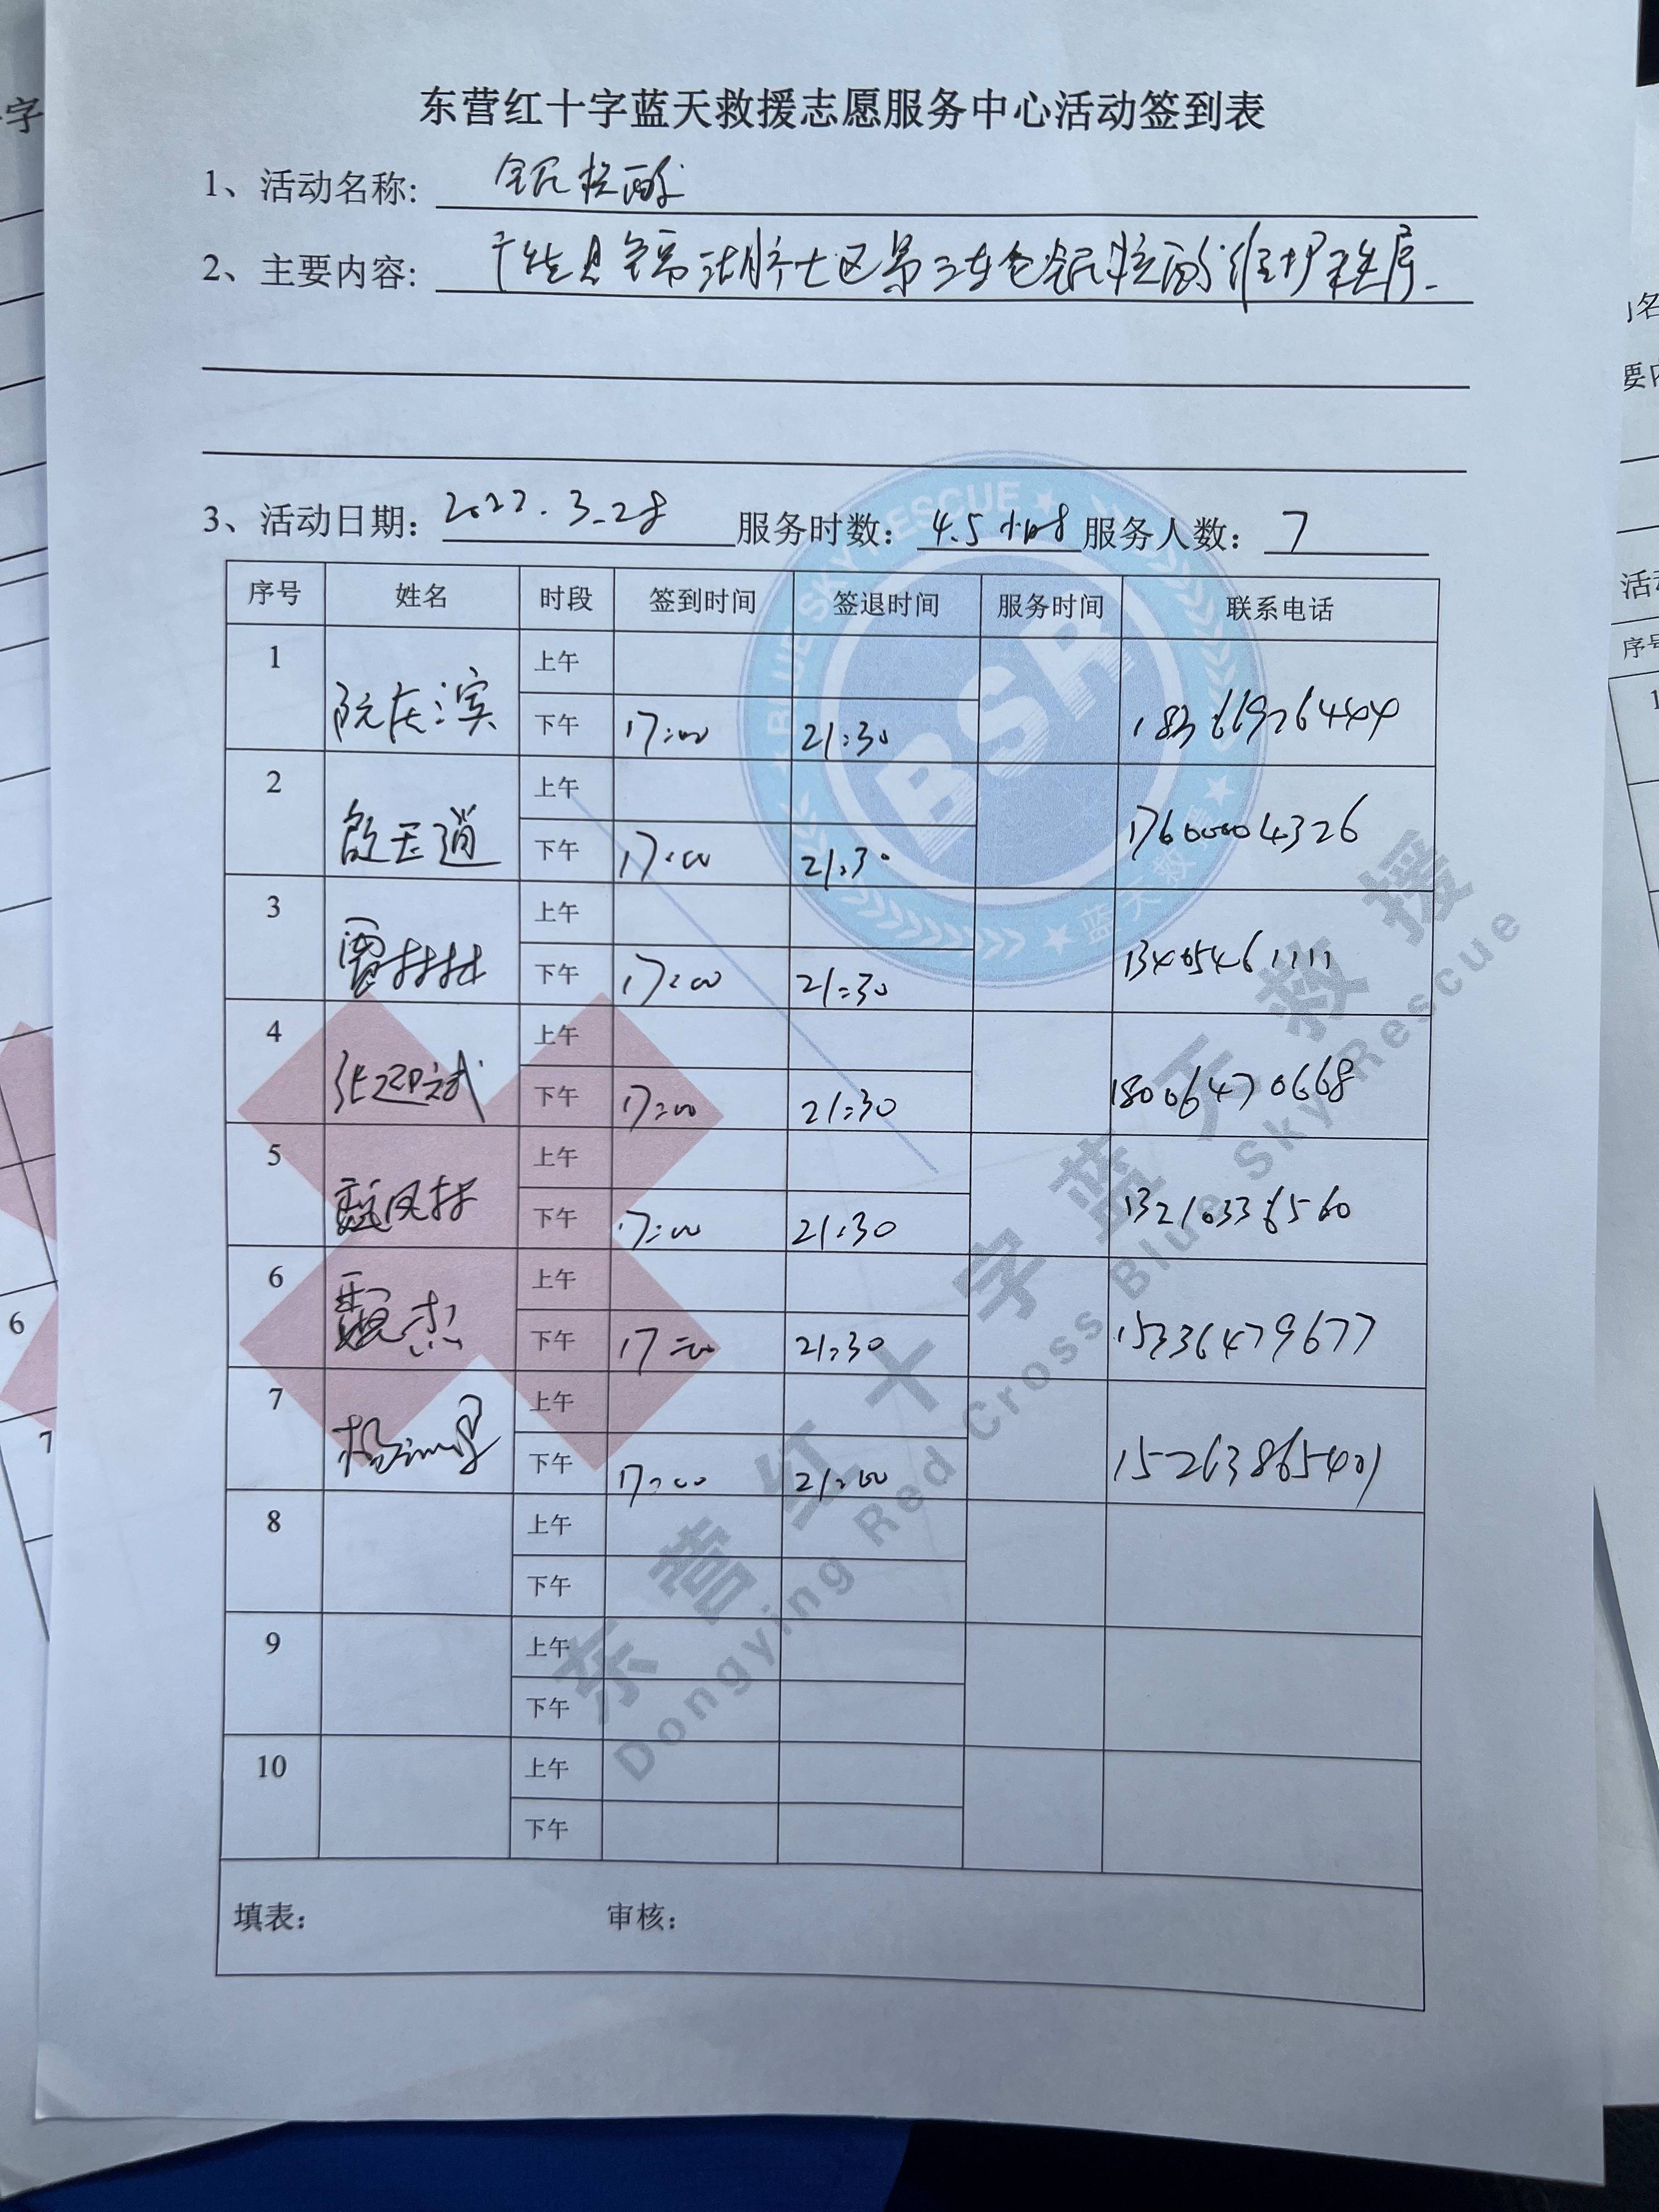 东营红十字蓝天救援志愿服务中心活动签到表
1、活动名称: 全民核酸
2、主要内容: 社区第三 全民核酸维护秩序.
3、活动日期: 2022.3.28 服务时数: 4.5小时 服务人数: 7
序号 姓名 时段 签到时间 签退时间 服务时间 联系电话
1 阮庆滨 上午
下午 17:00 21:30 18366926444
2 上午
下午 17:00 21:30 17600004326
3 上午
下午 17:00 21:30 13405461111
4 张迎武 上午
下午 17:00 21:30 18006470668
5 上午
下午 17:00 21:30 13210336560
6 上午
下午 17:00 21:30 15336479677
7 杨 上午
下午 17:00 21:00 15263865401
8 上午
下午
9 上午
下午
10 上午
下午
填表: 审核:
BLUE SKY RESCUE
BSR
蓝天救
东营红十字蓝天救援
Dongying Red Cross Blue Sky Rescue
字
6
7
要内
活动
序号
1